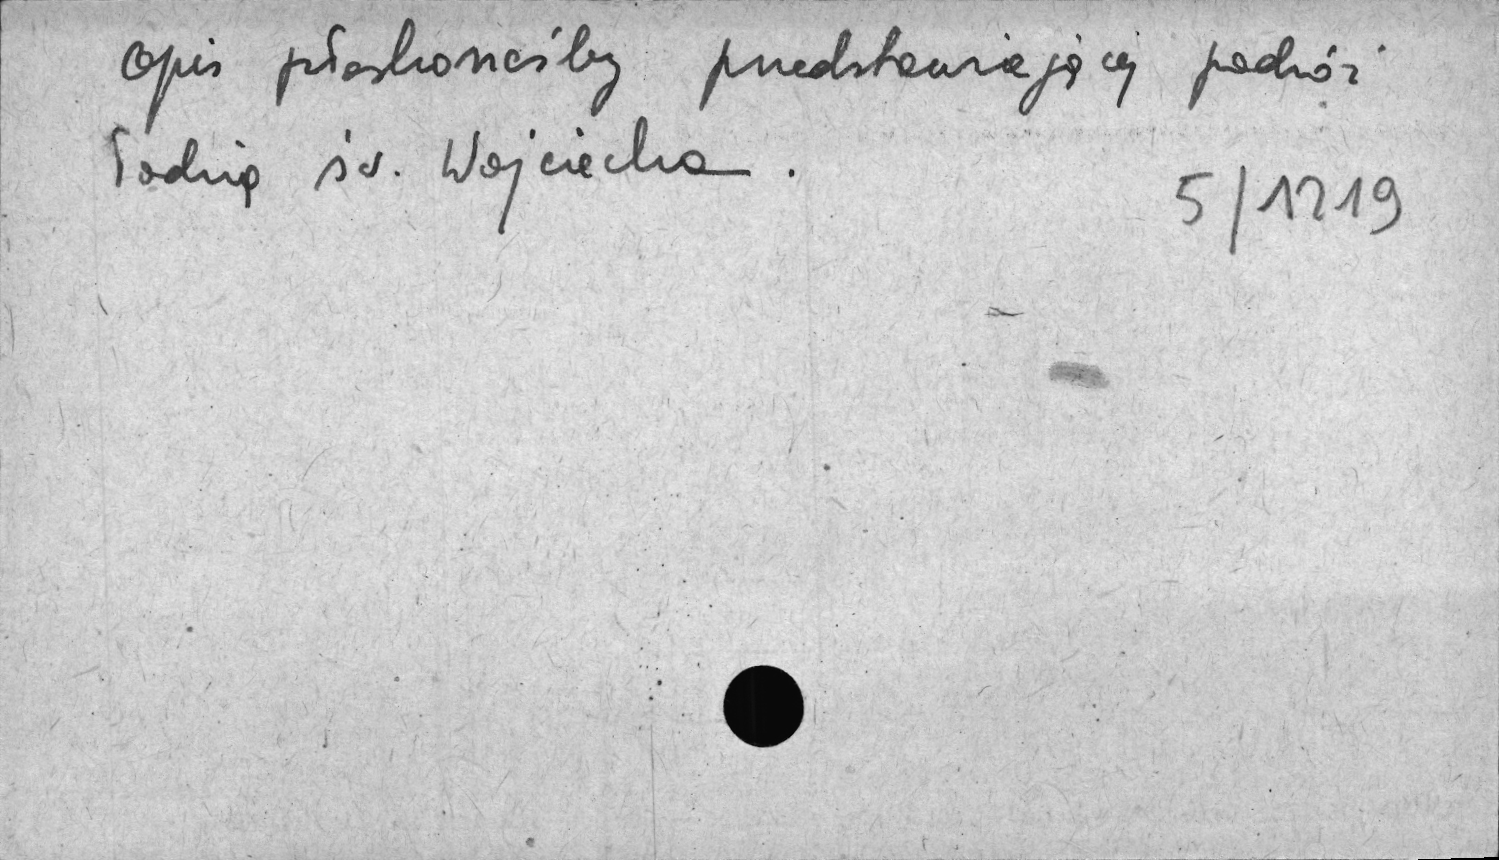 Opis płaskorzeźby przedstawiającej podróż
łodzią św. Wojciecha.
5/1219